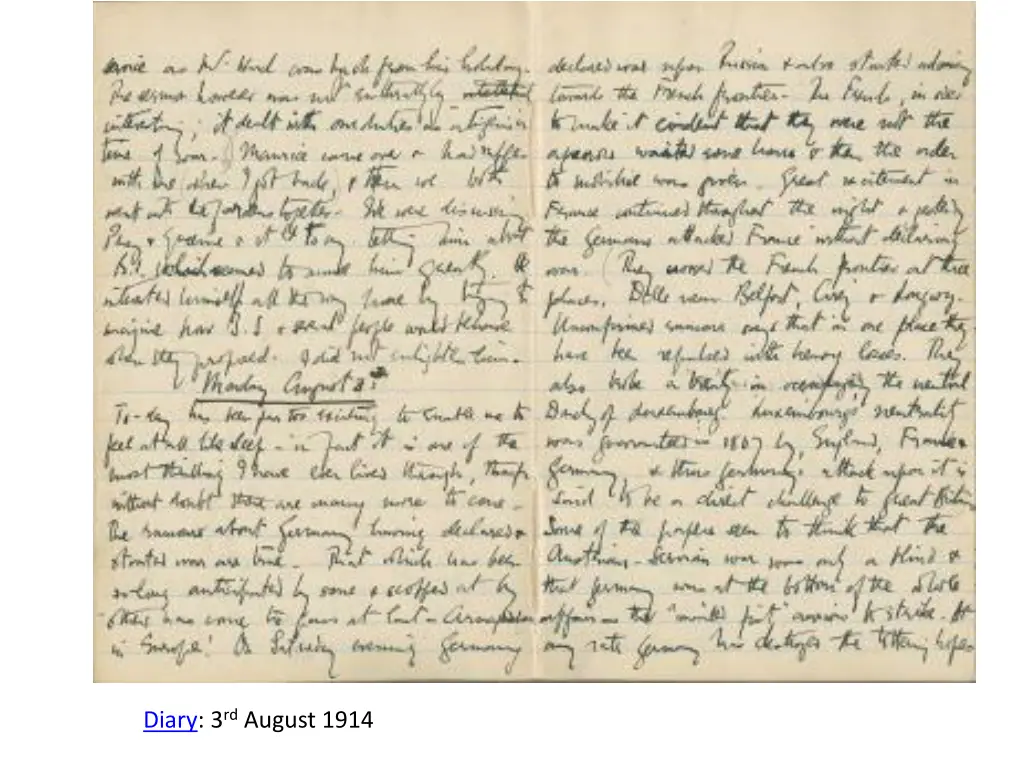 service as Mr. Ward was back from his holiday.
The sermon however was not sufficiently
interesting; it dealt with our duties as citizens in
time of war. Maurice came over & had supper
with me (when I got back), & then we both
went into the gardens together. We were discussing
to say. telling him about
B.S. which seemed to amuse him greatly. He
interested himself all the way home by trying to
imagine how B.S. & several people would behave
when they proposed. I did not enlighten him.
Monday August 3rd
To-day has been far too exciting to enable me to
feel at all like sleep – in fact it is one of the
most thrilling I have ever lived through, though
without doubt there are many more to come.
The rumours about Germany having declared &
started war are true. That which has been
so long anticipated by some & scoffed at by
others has come to pass at last – Armageddon
in Europe! On Saturday evening Germany
declared war upon Russia & also started advancing
towards the French frontier. The French, in order
to make it evident that they were not the
aggressors waited some hours & then the order
to mobilise was given. Great excitement in
France continued throughout the night &
the Germans attacked France without declaring
war. They crossed the French frontier at three
places, Delle near Belfort, Cirey & Longwy.
Unconfirmed rumour says that in one place they
have been repulsed with heavy losses. They
also broke a treaty in occupying the neutral
Duchy of Luxembourg. Luxembourg's neutrality
was guaranteed in 1867 by England, France &
Germany & thus Germany's attack upon it is
said to be a direct challenge to Great Britain.
Some of the papers seem to think that the
Austrian-Servian war was only a blind &
that Germany was at the bottom of the whole
affair – the "mailed fist" anxious to strike. At
any rate Germany has destroyed the tottering hopes
Diary: 3rd August 1914